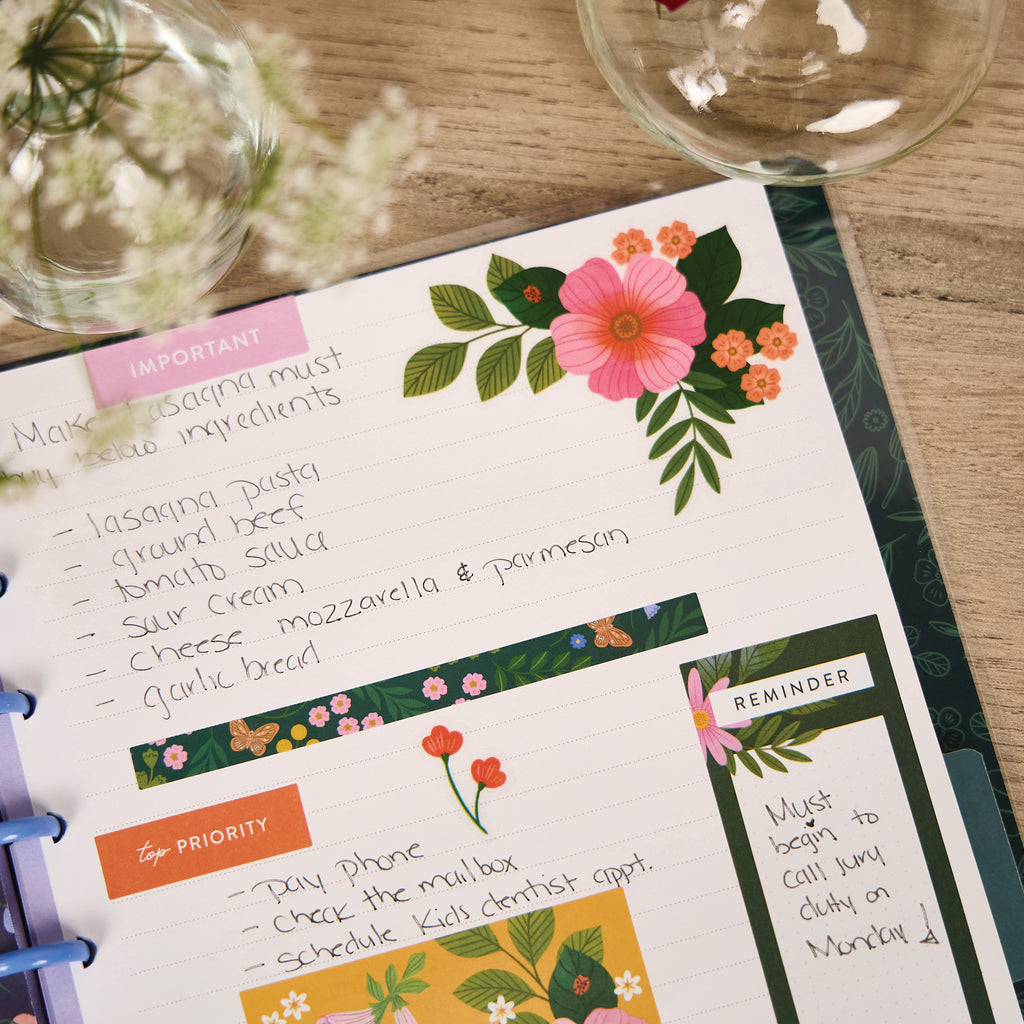 IMPORTANT
Make lasagna must
buy below ingredients
- lasagna pasta
- ground beef
- tomato sauce
- sour cream
- cheese mozzarella & parmesan
- garlic bread
top PRIORITY
- pay phone
- check the mailbox
- schedule kids dentist appt.
REMINDER
Must
begin to
call jury
duty on
Monday!